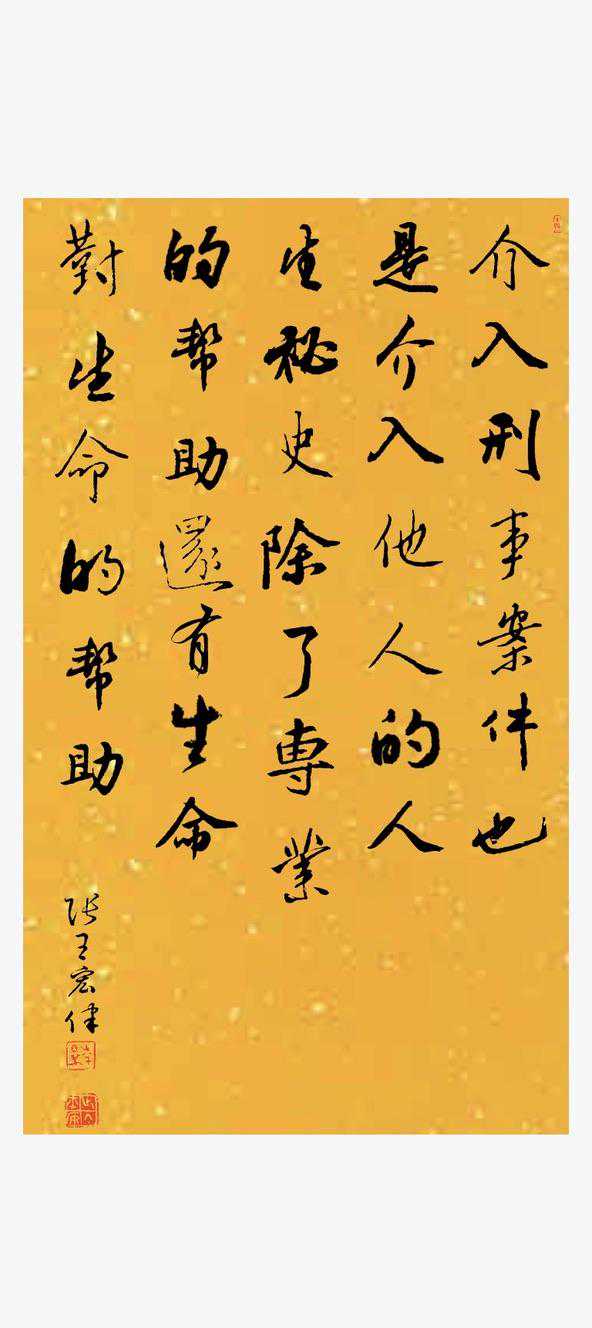 介入刑事案件也
是介入他人的人
生秘史除了專業
的帮助還有生命
對生命的帮助
张王宏律